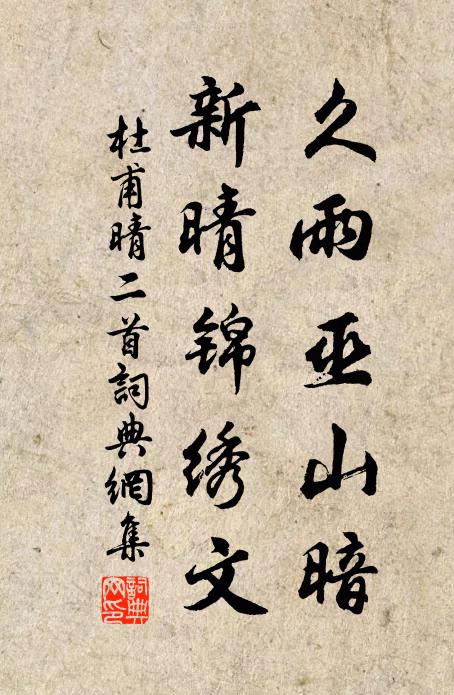 久雨巫山暗
新晴锦绣文
杜甫晴二首詞典網集
詞典网印